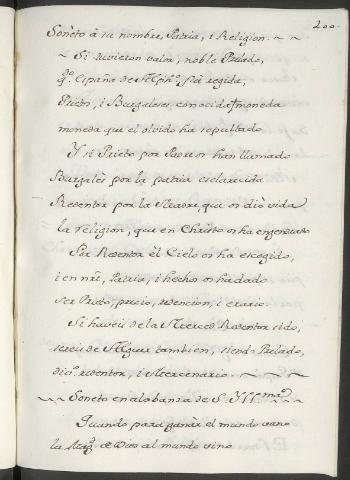 200
Soneto à su nombre, Patria, i Religion.
Si tuvieron valor, noble Prelado,
q.e España de Alpho. fuè regida,
Prietos, i Burgaleses, conocida moneda
moneda que el olvido ha sepultado
Y si Prieto por Padre os han llamado
Burgalès por la patria esclarecida
Redentor por la Madre, que os diò vida
la religion, que en Christo os ha engendrado
Por Redentor èl Cielo os ha escogido,
i en nre, Patria, i hechos os ha dado
ser Prieto, precio, redencion, i erario.
Si haveis de la Merced Redentor sido,
sereis de Alguer tambien, siendo Prelado,
redentor, i Mercenario.
Soneto en alabanza de S. Yll.ma
Quando para ganàr el mundo vano
la Mag. de Dios al mundo vino